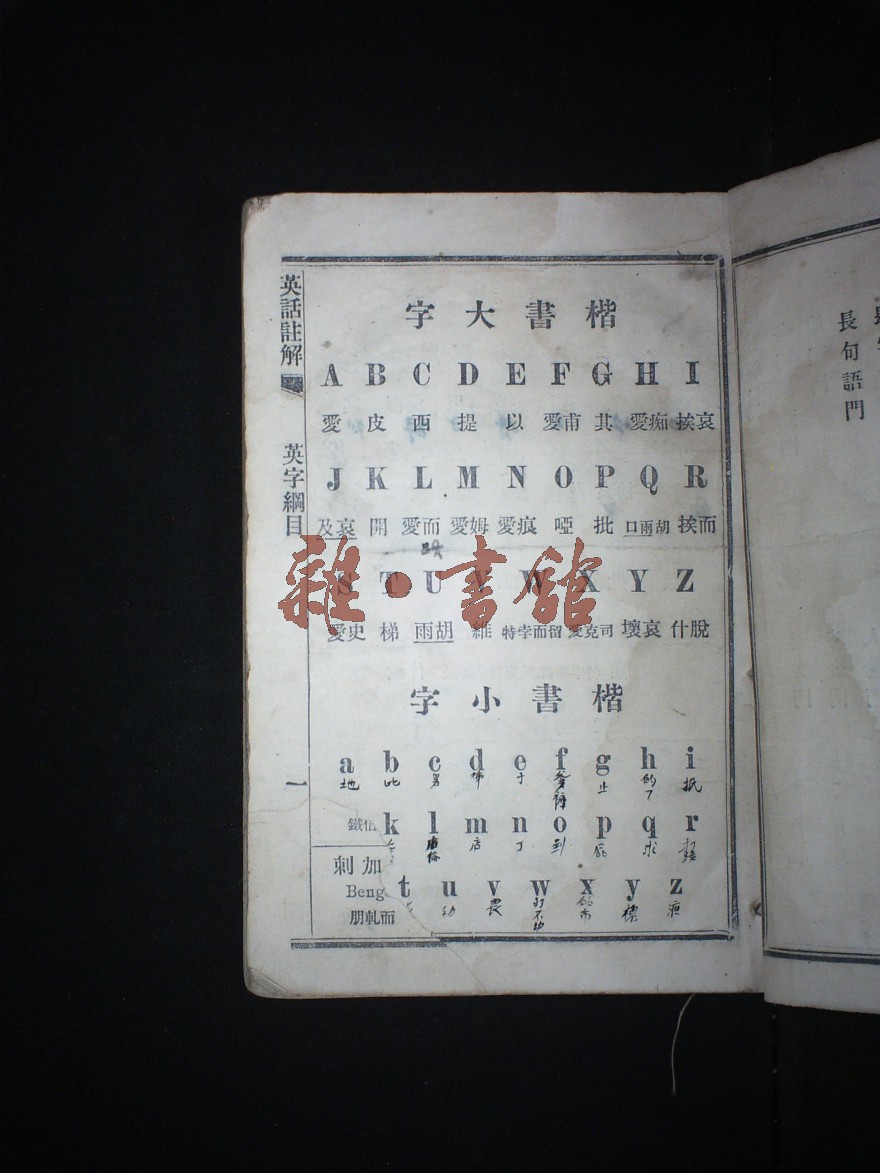 英話註解
英字綱目
一
字大書楷
A B C D E F G H I
愛 皮 西 提 以 愛甫 其 愛痴 挨哀
J K L M N O P Q R
及哀 開 愛而 愛姆 愛痕 啞 批 口雨胡 挨而
S T U V W X Y Z
愛史 梯 雨胡 維 特孛而留 愛克司 壞哀 什脫
字小書楷
a b c d e f g h i
地 比 止 的了 抵
k l m n o p q r
鐵 店 丁 到 求
t u v w x y z
幼 畏 打不中
刺加
Beng
朋軋而
長句語門
雜·書館